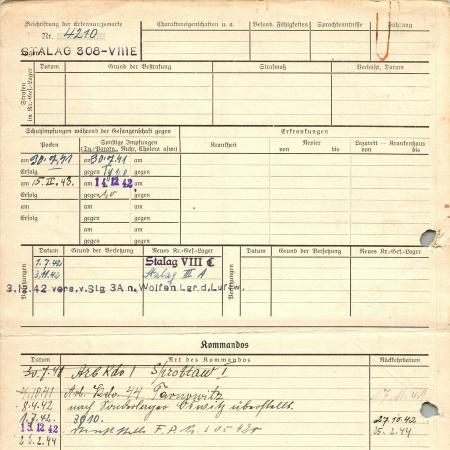 Beschriftung der Erkennungsmarke
Nr. 4210
STALAG 308-VIIIE
Charaktereigenschaften u. a.
Besond. Fähigkeiten
Sprachkenntnisse
Führung
Strafen im Kr.-Gef.-Lager
Datum
Grund der Bestrafung
Strafmaß
Verbüßt, Datum
Schutzimpfungen während der Gefangenschaft gegen
Erkrankungen
Pocken
Sonstige Impfungen
(Ty.-Paraty., Ruhr, Cholera usw.)
Krankheit
Revier
von bis
Lazarett - Krankenhaus
von bis
am 30.7.41 am 30.7.41 am
Erfolg gegen Typo gegen
am 15. III. 43. am 14. 12. 42 am
Erfolg gegen gegen
am am am
Erfolg gegen gegen
am am am
gegen gegen
Versetzungen
Datum
Grund der Versetzung
Neues Kr.-Gef.-Lager
Datum
Grund der Versetzung
Neues Kr.-Gef.-Lager
1.7.42 Stalag VIII C
3.11.42 Stalag III A
3.12.42 vers.v.Stg 3A n. Wolfen Lgr.d.Luftw.
Kommandos
Datum
Art des Kommandos
Rückkehrdatum
Arb Kdo 1 Sprottau !
4.10.41 Arb. Kdo. 44 Tarnowitz
8.4.42 nach Sonderlager überstellt.
1.7.42. 3610. 27.10.42
13.12.42 25.2.44
25.2.44